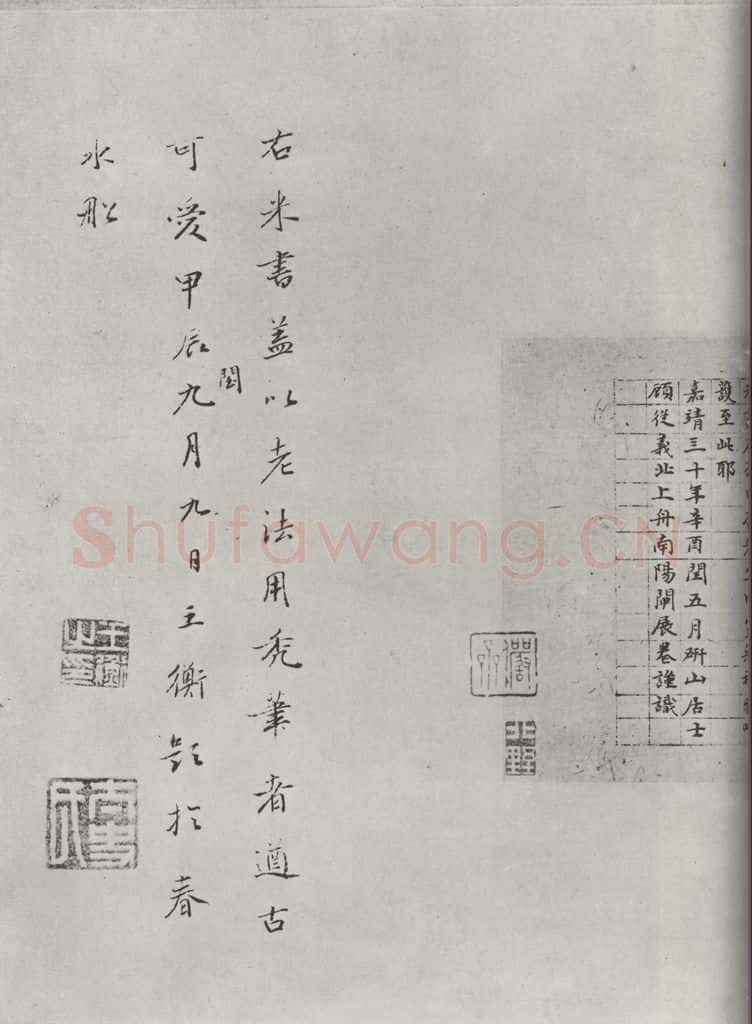 護至此耶
嘉靖三十年辛酉閏五月硏山居士
顧從義北上舟南陽閘展卷謹識
右米書蓋以老法用禿筆者遒古
可愛甲辰閏九月九日王衡題於春
水船
Shufawang.CN